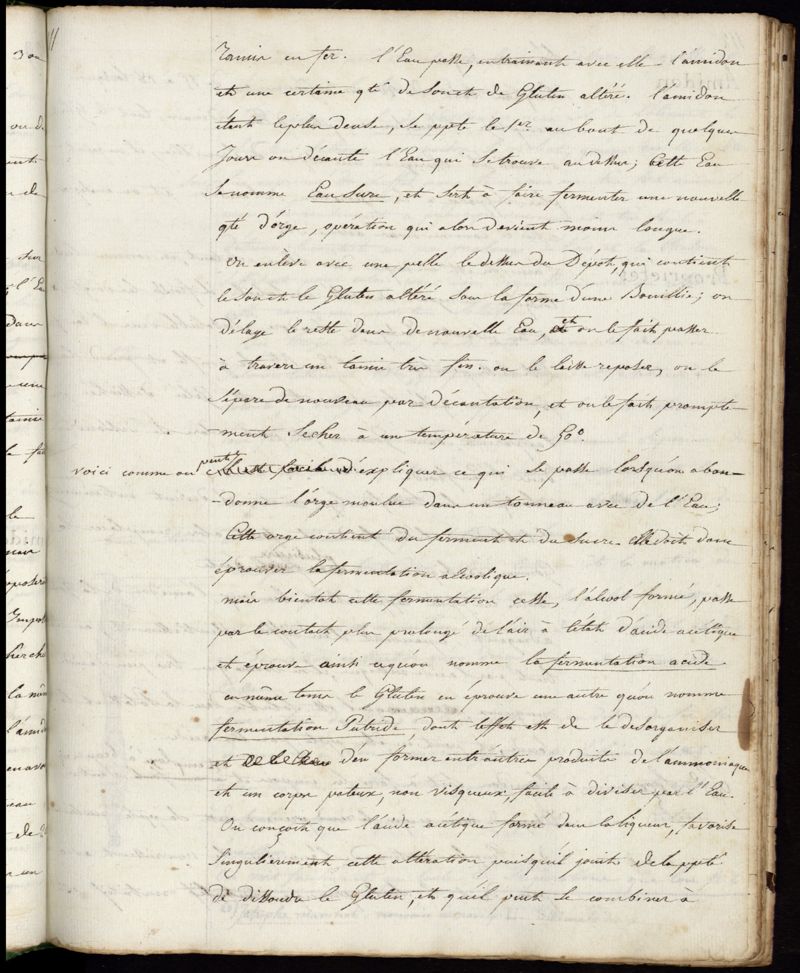 tamis en fer. l'Eau passe, entrainant avec elle l'amidon
et une certaine qté de son et de Gluten altéré. l'amidon
étant le plus dense, se ppte le 1er. au bout de quelques
Jours on décante l'Eau qui se trouve au dessus; Cette Eau
se nomme Eau Sure, et sert à faire fermenter une nouvelle
qté d'orge, opération qui alors devient moins longue.
On enlève avec une pelle le dessus du Dépôt, qui contient
le son et le Gluten altéré sous la forme d'une Bouillie; on
délaye le reste dans de nouvelle Eau, et on le fait passer
à travers un tamis très fin. on le laisse reposer, on le
sépare de nouveau par décantation, et on le fait prompte-
-ment sécher à un température de 50°.
voici comme on peut d'expliquer ce qui se passe lorsqu'on aban-
-donne l'orge moulue dans un tonneau avec de l'Eau;
Cette orge contient du ferment et du sucre elle doit donc
éprouver la fermentation alcoolique.
mais bientot cette fermentation cesse, l'alcool formé, passe
par le contact plus prolongé de l'air à l'état d'acide acétique
et éprouve ainsi ce qu'on nomme la fermentation acide
en même tems le Gluten en éprouve une autre qu'on nomme
fermentation Putride, dont l'effet est de le desorganiser
et d'en former entr'autres produits de l'ammoniaque
et un corps pateux, non visqueux, facile à diviser par l'Eau.
On conçoit que l'acide acétique formé dans la liqueur, favorise
singulierement cette altération puisqu'il jouit de la ppté
de dissoudre le Gluten, et qu'il peut se combiner à